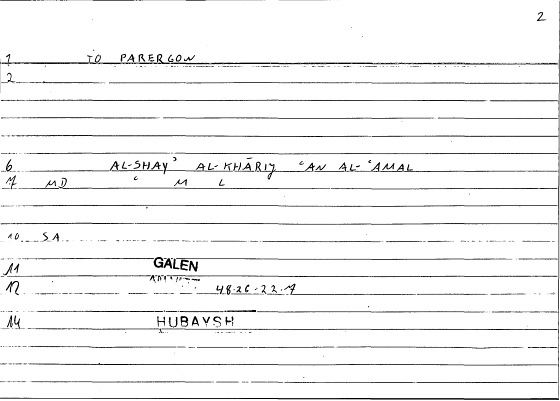 2
1 TO PARERGON
2
6 AL-SHAYʾ AL-KHĀRIJ ʿAN AL-ʿAMAL
7 MD ʿ M L
10 SA
11 GALEN
12 48.26-22.7
14 HUBAYSH